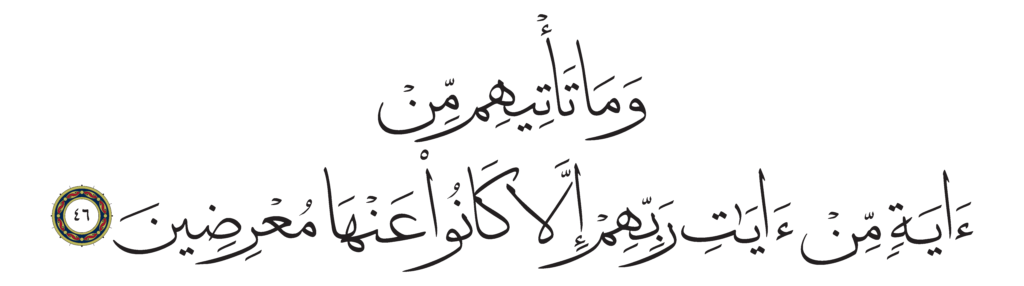 وَمَا تَأْتِيهِم مِّنْ
ءَايَةٍ مِّنْ ءَايَٰتِ رَبِّهِمْ إِلَّا كَانُوا۟ عَنْهَا مُعْرِضِينَ ٤٦